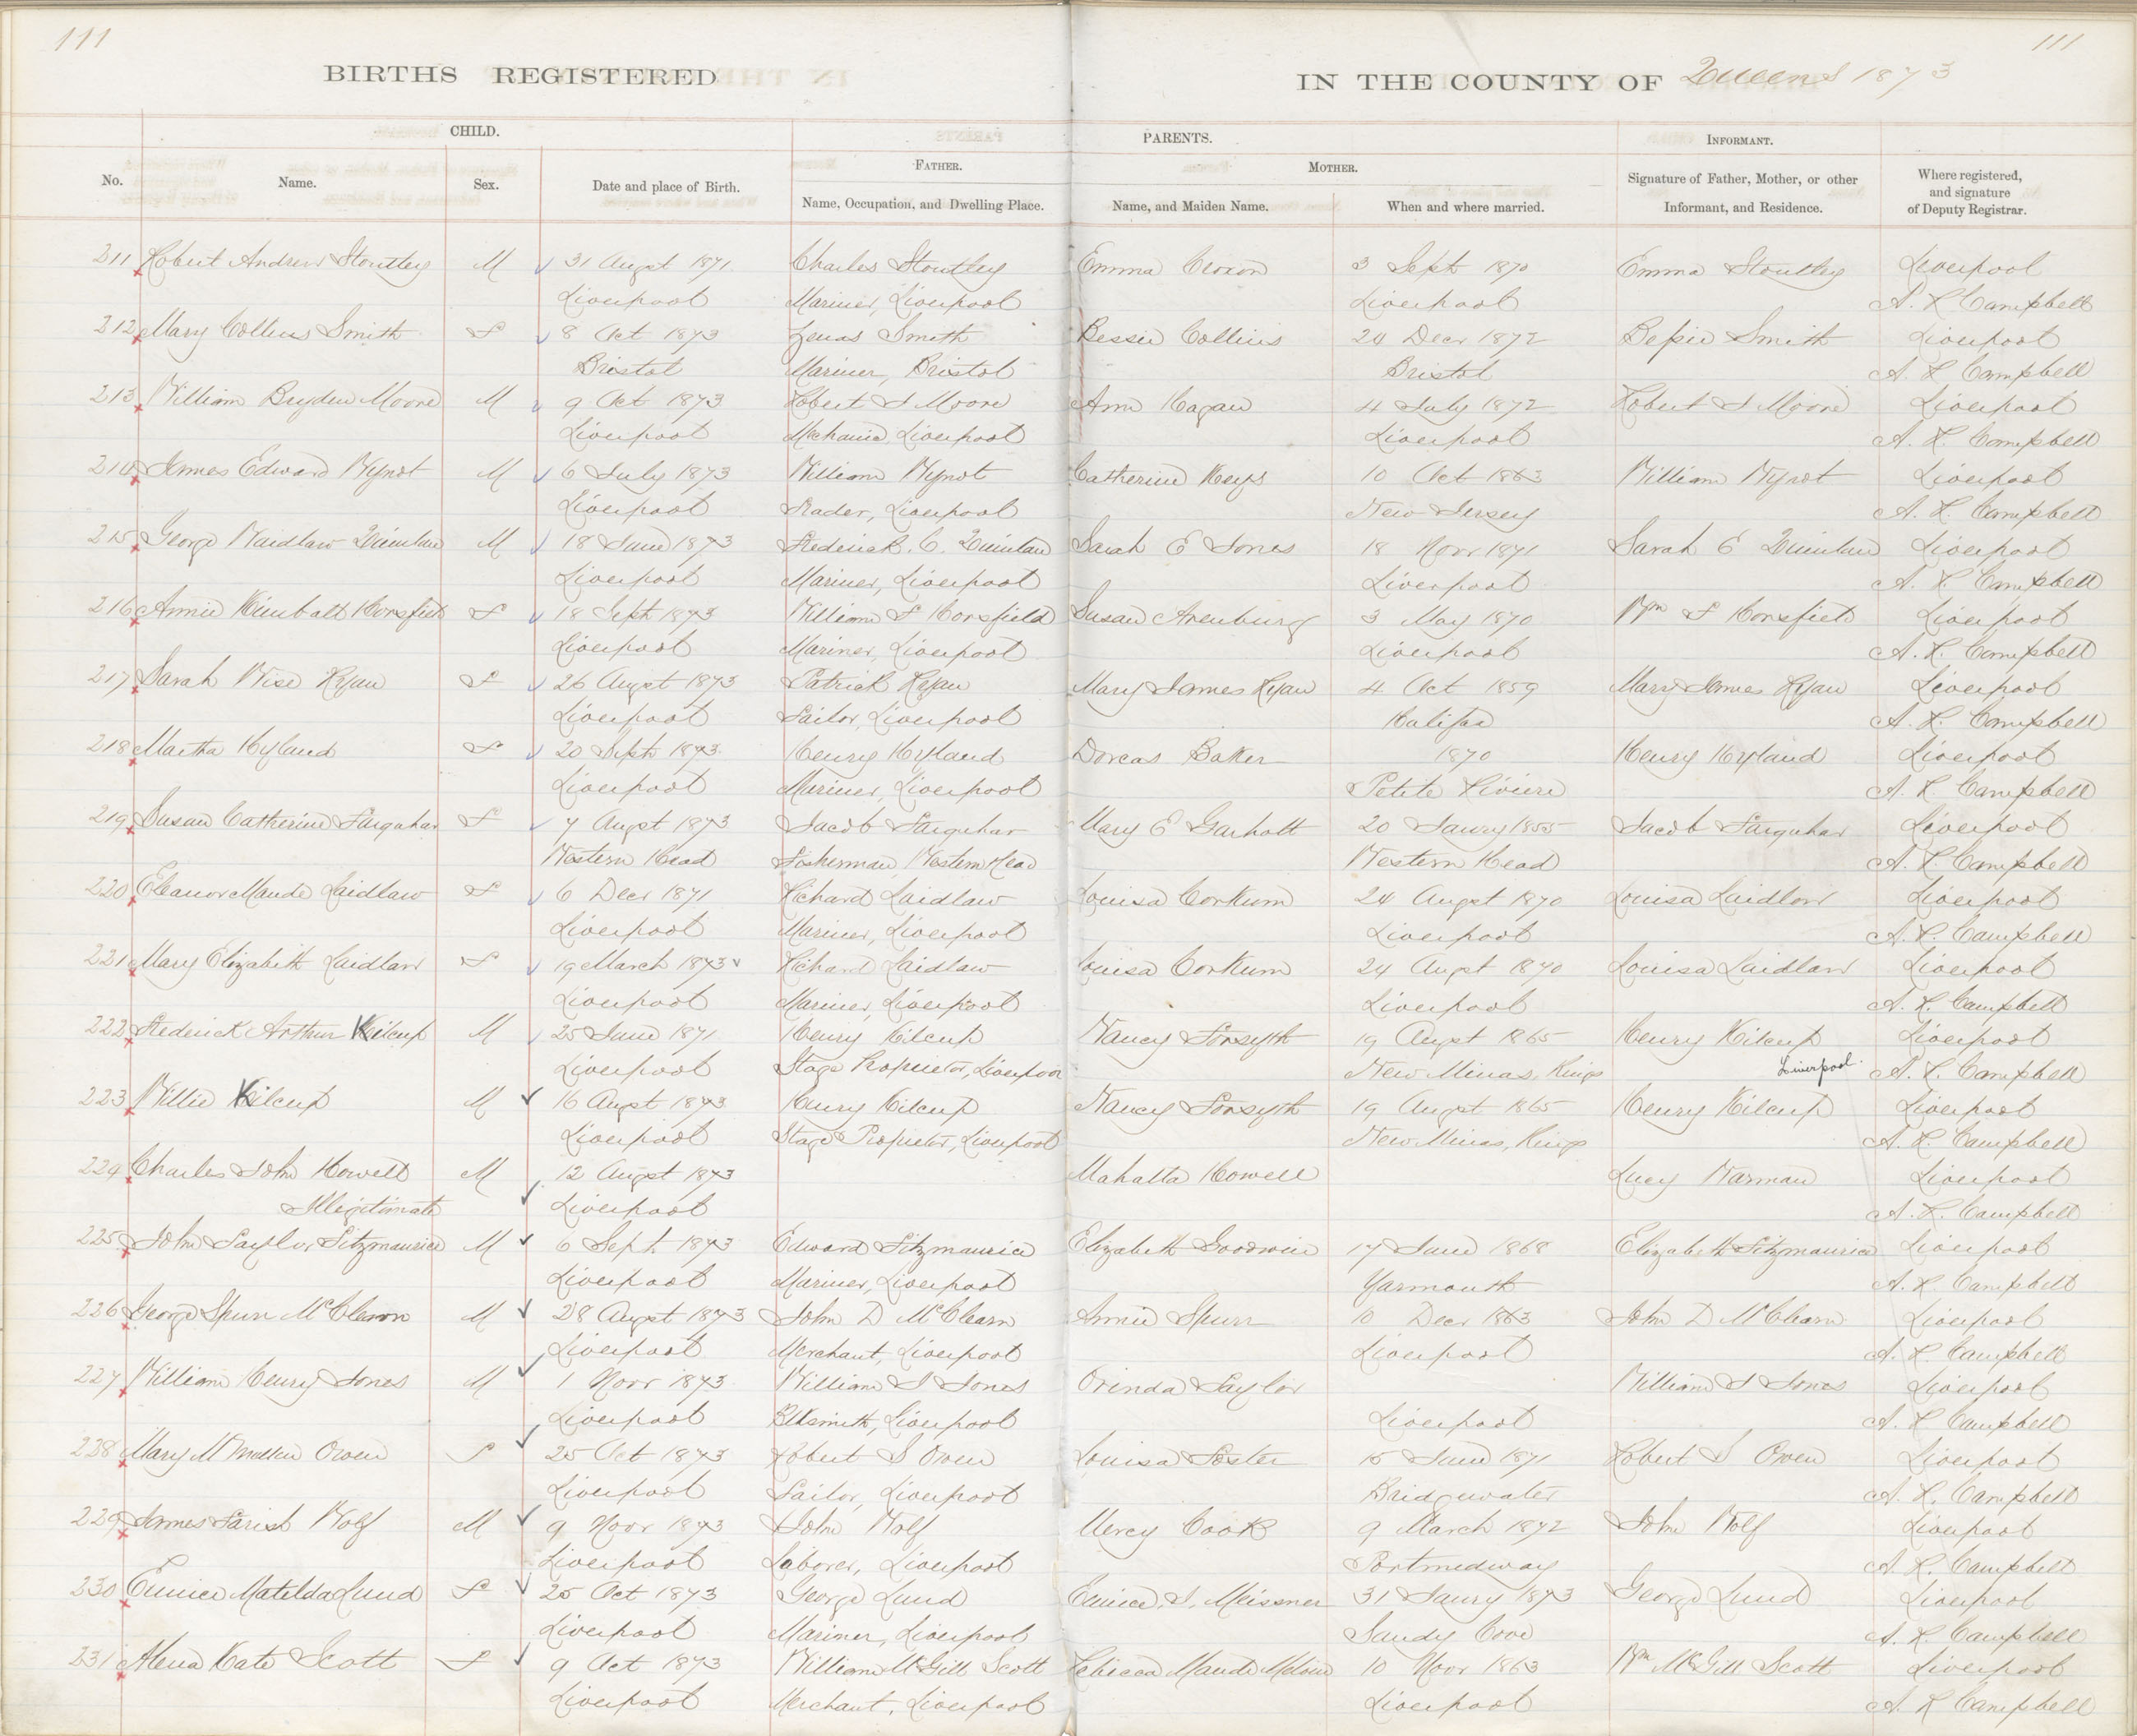 111
111
BIRTHS REGISTERED
IN THE COUNTY OF Queens 1873
CHILD.
PARENTS.
INFORMANT.
No.
Name.
Sex.
Date and place of Birth.
FATHER.
Name, Occupation, and Dwelling Place.
MOTHER.
Name, and Maiden Name.
When and where married.
Signature of Father, Mother, or other
Informant, and Residence.
Where registered,
and signature
of Deputy Registrar.
211 Robert Andrew Stoutley M 31 Augst 1871 Charles Stoutley Emma Croxon 3 Sept 1870 Emma Stoutley Liverpool
Liverpool Mariner, Liverpool Liverpool A. L. Campbell
212 Mary Collins Smith F 8 Oct 1873 Zenas Smith Bessie Collins 24 Decr 1872 Bessie Smith Liverpool
Bristol Mariner, Bristol Bristol A. L. Campbell
213 William Bryden Moore M 9 Oct 1873 Robert S Moore Ann Hagan 4 July 1872 Robert S Moore Liverpool
Liverpool Mechanic, Liverpool Liverpool A. L. Campbell
214 James Edward Wynot M 6 July 1873 William Wynot Catherine Keys 10 Oct 1863 William Wynot Liverpool
Liverpool Trader, Liverpool New Jersey A. L. Campbell
215 George Waidlaw Quinlan M 18 June 1873 Frederick. C. Quinlan Sarah E Jones 18 Novr 1871 Sarah E Quinlan Liverpool
Liverpool Mariner, Liverpool Liverpool A. L. Campbell
216 Annie Kimball Horsfield F 18 Sept 1873 William F Horsfield Susan Arenburg 3 May 1870 Wm F Horsfield Liverpool
Liverpool Mariner, Liverpool Liverpool A. L. Campbell
217 Sarah Wise Ryan F 26 Augst 1873 Patrick Ryan Mary James Ryan 4 Oct 1859 Mary James Ryan Liverpool
Liverpool Sailor, Liverpool Halifax A. L. Campbell
218 Martha Hyland F 20 Sept 1873 Henry Hyland Dorcas Baker 1870 Henry Hyland Liverpool
Liverpool Mariner, Liverpool Petite Riviere A. L. Campbell
219 Susan Catherine Farquhar F 7 Augst 1873 Jacob Farquhar Mary E 20 Janry 1855 Jacob Farquhar Liverpool
Western Head Fisherman, Western Head Western Head A. L. Campbell
220 Eleanor Maude Laidlaw F 6 Decr 1871 Richard Laidlaw Louisa Corkum 24 Augst 1870 Louisa Laidlaw Liverpool
Liverpool Mariner, Liverpool Liverpool A. L. Campbell
221 Mary Elizabeth Laidlaw F 19 March 1873 Richard Laidlaw Louisa Corkum 24 Augst 1870 Louisa Laidlaw Liverpool
Liverpool Mariner, Liverpool Liverpool A. L. Campbell
222 Frederick Arthur Kilcup M 25 June 1871 Henry Kilcup Nancy Forsyth 19 Augst 1865 Henry Kilcup Liverpool
Liverpool Stage Proprietor, Liverpool New Minas, Kings Liverpool A. L. Campbell
223 Willie Kilcup M 16 Augst 1873 Henry Kilcup Nancy Forsyth 19 Augst 1865 Henry Kilcup Liverpool
Liverpool Stage Proprietor, Liverpool New Minas, Kings A. L. Campbell
224 Charles John Howell M 12 Augst 1873 Mahalla Howell Lucy Warman Liverpool
Illegitimate Liverpool A. L. Campbell
225 John Taylor Fitzmaurice M 6 Sept 1873 Edward Fitzmaurice Elizabeth Goodwin 17 June 1868 Elizabeth Fitzmaurice Liverpool
Liverpool Mariner, Liverpool Yarmouth A. L. Campbell
226 George Spurr McClearn M 28 Augst 1873 John D McClearn Annie Spurr 10 Decr 1863 John D McClearn Liverpool
Liverpool Merchant, Liverpool Liverpool A. L. Campbell
227 William Henry Jones M 1 Novr 1873 William J Jones Orinda Taylor William J Jones Liverpool
Liverpool Blksmith, Liverpool Liverpool A. L. Campbell
228 Mary Owen F 25 Oct 1873 Robert S Owen Louisa Foster 15 June 1871 Robert S Owen Liverpool
Liverpool Sailor, Liverpool Bridgewater A. L. Campbell
229 James Parish Wolf M 9 Novr 1873 John Wolf Mercy Cook 9 March 1872 John Wolf Liverpool
Liverpool Laborer, Liverpool Portmedway A. L. Campbell
230 Eunice Matilda Lund F 25 Oct 1873 George Lund Eunice. J. Meissner 31 Janry 1873 George Lund Liverpool
Liverpool Mariner, Liverpool Sandy Cove A. L. Campbell
231 Alena Kate Scott F 9 Oct 1873 William McGill Scott Rebecca Maude 10 Novr 1863 Wm McGill Scott Liverpool
Liverpool Merchant, Liverpool Liverpool A. L. Campbell